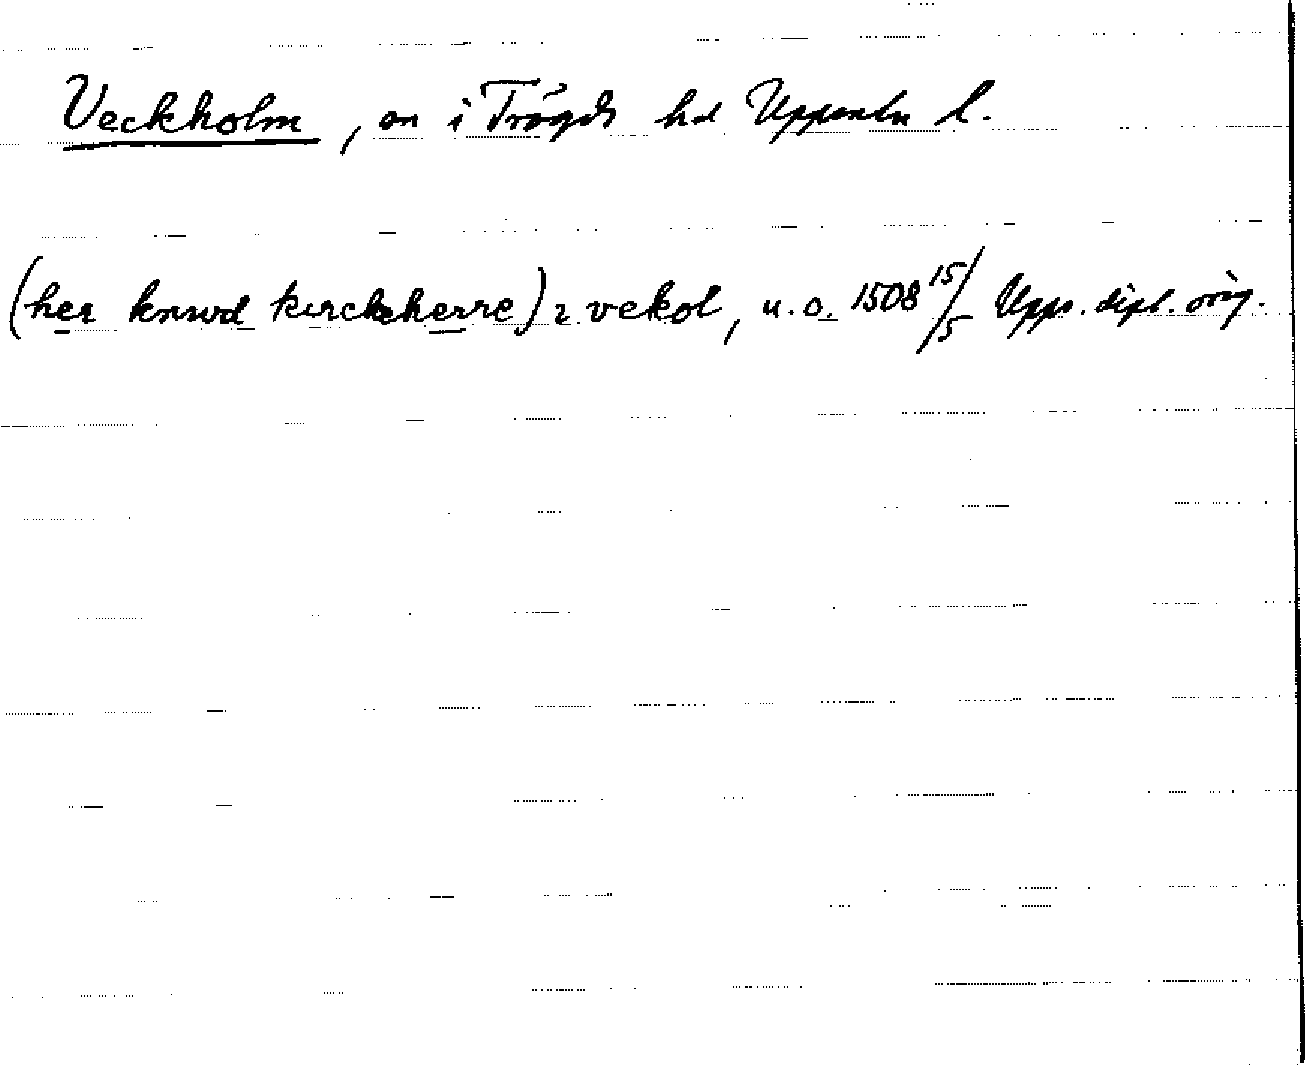 Veckholm, sn i Trögds hd Uppsala l.
(her knwd kirckeherre) i vekol, u.o. 1508 15/5 Upps. dipl. orig.